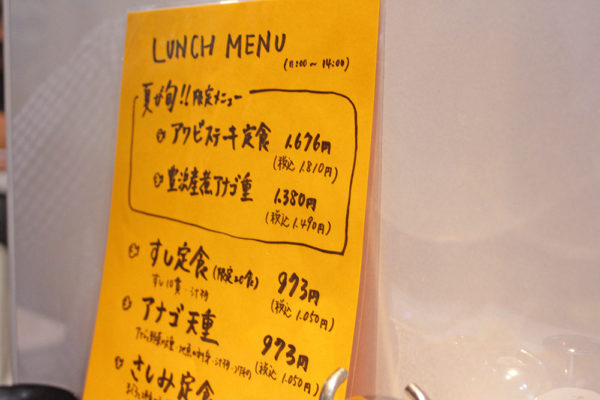 LUNCH MENU
(11:00〜14:00)
夏が旬!! 限定メニュー
アワビステーキ定食 1.676円
(税込 1.810円)
豊浜産煮アナゴ重 1.380円
(税込 1.490円)
すし定食(限定20食) 973円
すし10貫・汁物 (税込 1.050円)
アナゴ天重 973円
(税込 1.050円)
さしみ定食